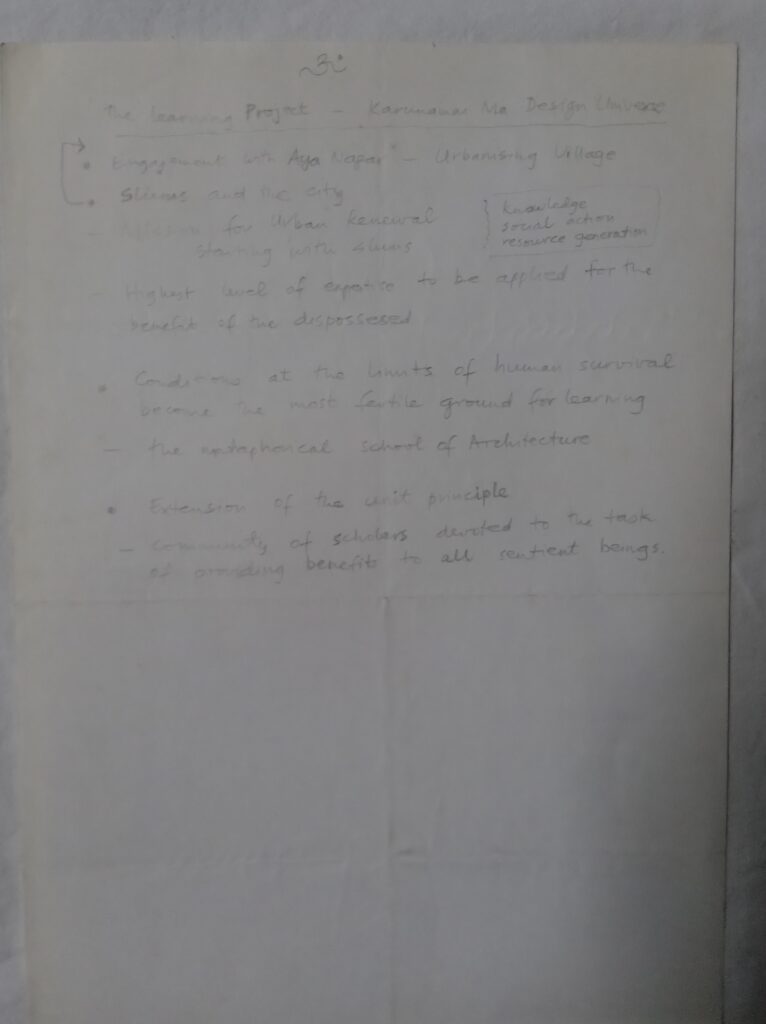 ॐ
The Learning Project – Karunamai Ma Design Universe
• Engagement with Aya Nagar – Urbanising Village
• Slums and the city
– Mission for Urban Renewal
starting with slums
Knowledge
social action
resource generation
– Highest level of expertise to be applied for the
benefit of the dispossessed
• Conditions at the limits of human survival
become the most fertile ground for learning
– the metaphorical school of Architecture
• Extension of the unit principle
– Community of scholars devoted to the task
of providing benefits to all sentient beings.